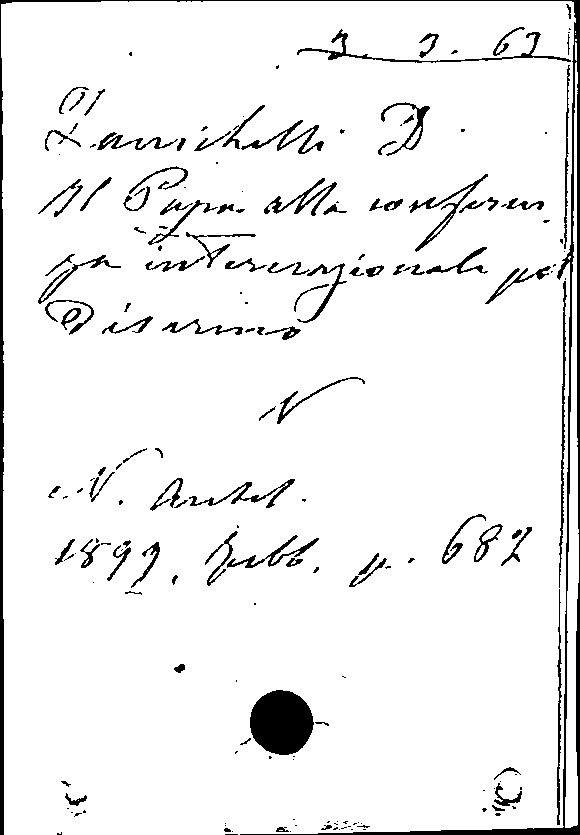 3. 3. 63
Zanichelli D.
Il Papa alla conferen
za internazionale pel
Disarmo
N
N. Antol.
1899. Febb. p. 682